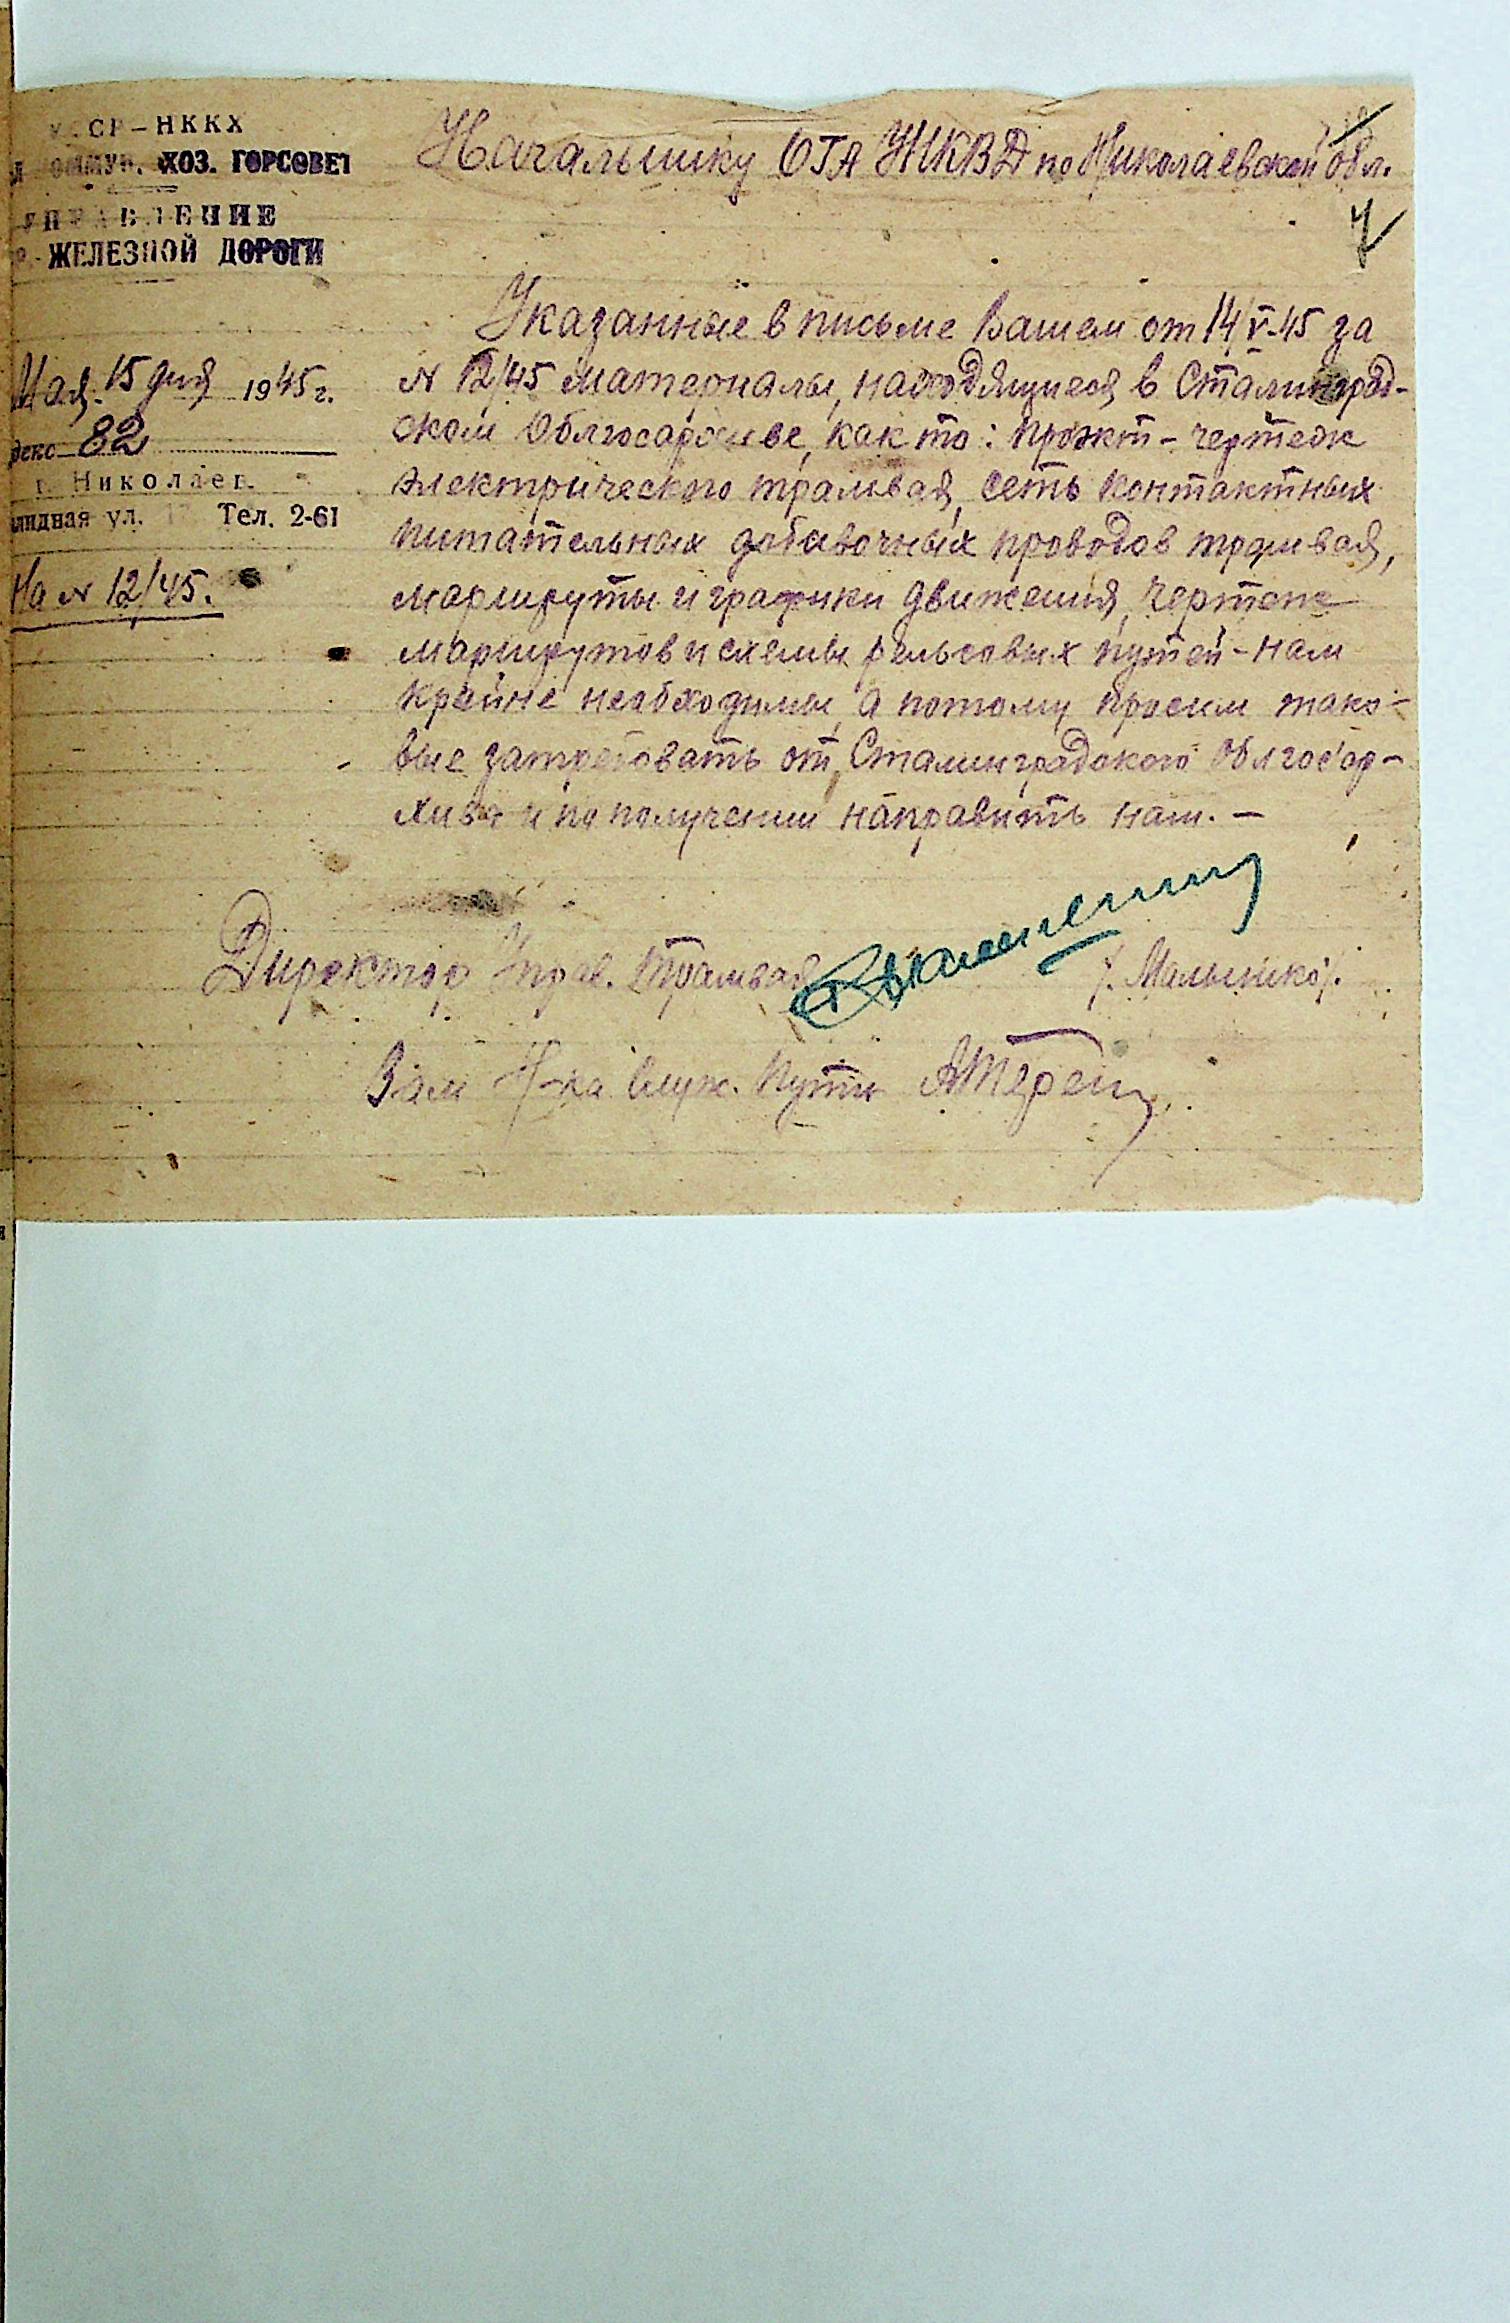 УССР – НККХ
КОММУН. ХОЗ. ГОРСОВЕТ
УПРАВЛЕНИЕ
ЖЕЛЕЗНОЙ ДОРОГИ
Мая 15 дня 1945 г.
82
г. Николаев
ул. Тел. 2-61
На № 12/45.
Начальнику ОГА НКВД по Николаевской обл.
7
Указанные в письме Вашем от 14/V-45 за
№ 12/45 материалы, находящиеся в Сталинград-
ском Облгосархиве, как то: проэкт – чертеж
электрического трамвая, сеть контактных
питательных добавочных проводов трамвая,
маршруты и графики движения, чертеж
маршрутов и схемы рельсовых путей – нам
крайне необходимы, а потому просим тако-
вые затребовать от Сталинградского Облгосар-
хива и по получении направить нам. –
Директор Управ. Трамвая /. Малышко /.
Зам Н-ка Служ. Пути